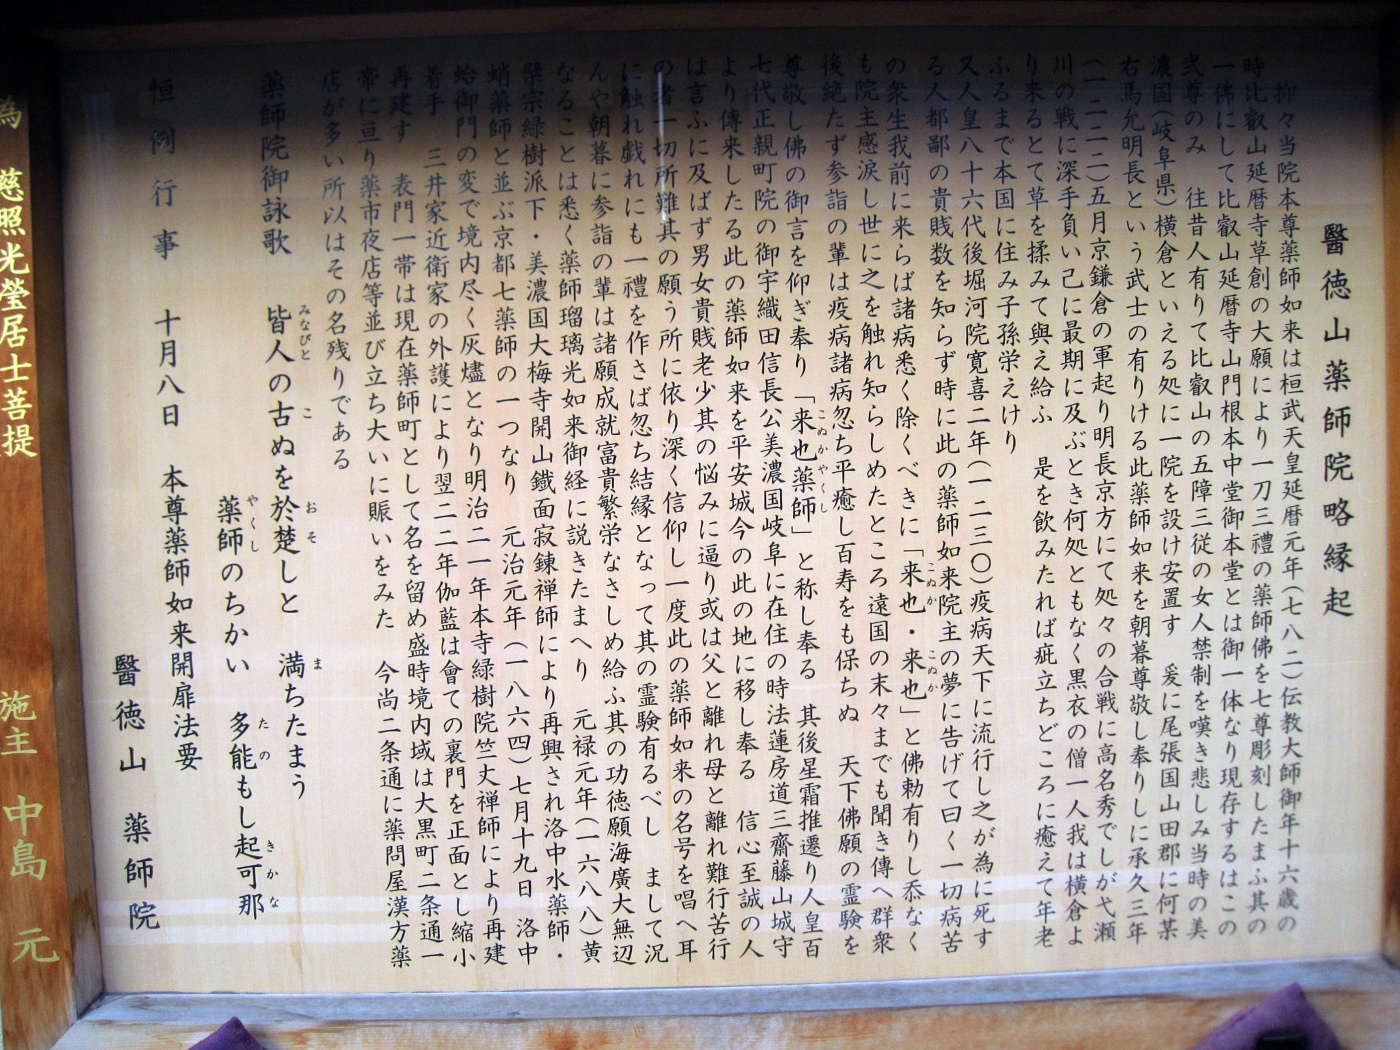 醫徳山薬師院略縁起
抑々当院本尊薬師如来は桓武天皇延暦元年(七八二)伝教大師御年十六歳の
時比叡山延暦寺草創の大願により一刀三禮の薬師佛を七尊彫刻したまふ其の
一佛にして比叡山延暦寺山門根本中堂御本堂とは御一体なり現存するはこの
弐尊のみ 往昔人有りて比叡山の五障三従の女人禁制を嘆き悲しみ当時の美
濃国(岐阜県)横倉といえる処に一院を設け安置す 爰に尾張国山田郡に何某
右馬允明長という武士の有りける此薬師如来を朝暮尊敬し奉りしに承久三年
(一二二一)五月京鎌倉の軍起り明長京方にて処々の合戦に高名秀でしが弋瀬
川の戦に深手負い己に最期に及ぶとき何処ともなく黒衣の僧一人我は横倉よ
り来るとて草を揉みて與え給ふ 是を飲みたれば疵立ちどころに癒えて年老
ふるまで本国に住み子孫栄えけり
又人皇八十六代後堀河院寛喜二年(一二三〇)疫病天下に流行し之が為に死す
る人都鄙の貴賎数を知らず時に此の薬師如来院主の夢に告げて曰く一切病苦
の衆生我前に来らば諸病悉く除くべきに「来也・来也」と佛勅有りし忝なく
こぬか こぬか
も院主感涙し世に之を触れ知らしめたところ遠国の末々までも聞き傳へ群衆
後絶たず参詣の輩は疫病諸病忽ち平癒し百寿をも保ちぬ 天下佛願の霊験を
尊敬し佛の御言を仰ぎ奉り「来也薬師」と称し奉る 其後星霜推遷り人皇百
こぬかやくし
七代正親町院の御宇織田信長公美濃国岐阜に在住の時法蓮房道三齋藤山城守
より傳来したる此の薬師如来を平安城今の此の地に移し奉る 信心至誠の人
は言ふに及ばず男女貴賎老少其の悩みに逼り或は父と離れ母と離れ難行苦行
の者一切所難其の願う所に依り深く信仰し一度此の薬師如来の名号を唱へ耳
に触れ戯れにも一禮を作さば忽ち結縁となって其の霊験有るべし まして況
んや朝暮に参詣の輩は諸願成就富貴繁栄なさしめ給ふ其の功徳願海廣大無辺
なることは悉く薬師瑠璃光如来御経に説きたまへり 元禄元年(一六八八)黄
檗宗緑樹派下・美濃国大梅寺開山鐵面寂錬禅師により再興され洛中水薬師・
蛸薬師と並ぶ京都七薬師の一つなり 元治元年(一八六四)七月十九日 洛中
蛤御門の変で境内尽く灰燼となり明治二一年本寺緑樹院竺丈禅師により再建
着手 三井家近衛家の外護により翌二二年伽藍は會ての裏門を正面とし縮小
再建す 表門一帯は現在薬師町として名を留め盛時境内域は大黒町二条通一
帯に亘り薬市夜店等並び立ち大いに賑いをみた 今尚二条通に薬問屋漢方薬
店が多い所以はその名残りである
薬師院御詠歌 皆人の古ぬを於楚しと 満ちたまう
みなびと こ おそ ま
薬師のちかい 多能もし起可那
やくし たの きかな
恒例行事 十月八日 本尊薬師如来開扉法要
醫徳山 薬師院
為 慈照光瑩居士菩提
施主 中島 元